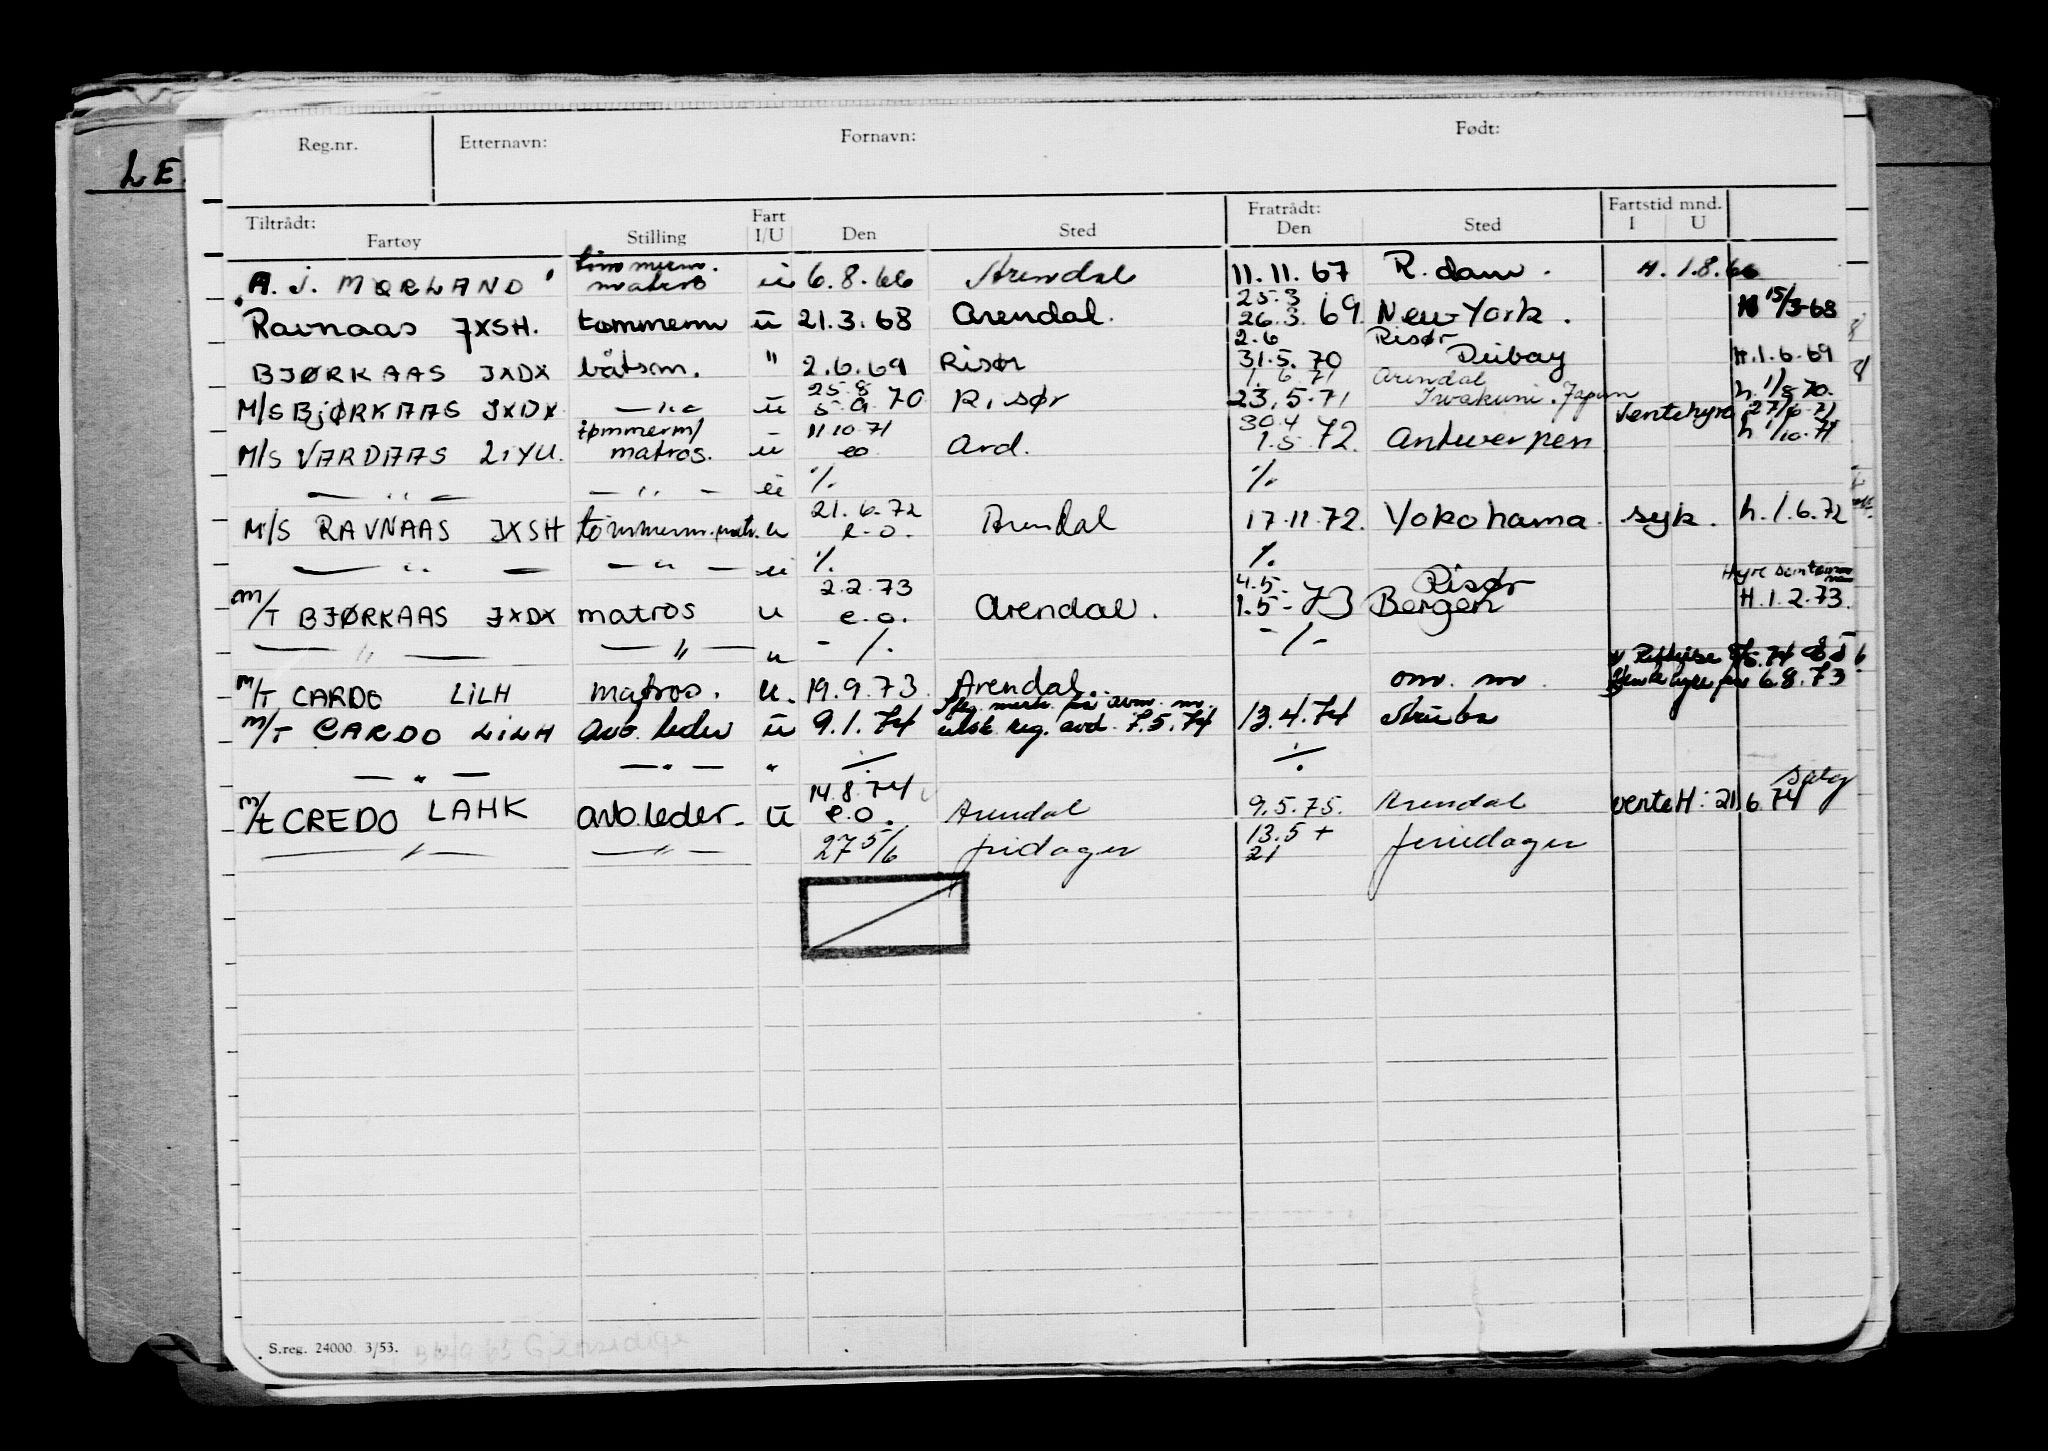 LE
Reg.nr. Etternavn: Fornavn: Født:
Tiltrådt: Fartøy Stilling Fart I/U Den Sted Fratrådt: Den Sted Fartstid mnd. I U
"A. J. MØRLAND" tømmerm. matros u 6.8.66 Arendal 11.11.67 R.dam. H. 1.8.66
25.3
Ravnaas JXSH. tømmerm u 21.3.68 Arendal. 26.3.69 New York. H 15/3-68
2.6 Risør
BJØRKAAS JXDX båtsm. " 2.6.69 Risør 31.5.70 Dubay H.1.6.69
25.8 1.6.71 Arendal h. 1/8 70.
M/S BJØRKAAS JXDX —"— u 5.9.70 Risør 23.5.71 Iwakuni. Japan Ventehyre 27/6-71
tømmerm/ 11.10.71 30.4
M/S VARDAAS LIYU. matros. u eo Ard. 1.5.72. Antwerpen h 1/10.71
— " — — " — u ./. ./.
21.6.72
M/S RAVNAAS JXSH tømmerm.matr. u e.o. Arendal 17.11.72. Yokohama. syk. h.1.6.72
— " — — " — u ./. ./.
2.2.73 4.5 Risør Hyre
M/T BJØRKAAS JXDX matros u e.o. Arendal. 1.5-73 Bergen H.1.2.73.
— " — — " — u -/. -/-
M/T CARDO LILH matros. u. 19.9.73. Arendal. om. m. 6.8.73
M/T CARDO LILH avd. leder u 9.1.74 utsk. reg. avd. 7.5.74 13.4.74 Aruba
— " — — " — " ./. ./.
14.8.74 Salg
M/T CREDO LAHK avd.leder. u e.o. Arendal 9.5.75. Arendal vente H: 21.6.74
— " — — " — 27 5/6 fridager 13.5 + 21 feriedager
S.reg. 24000. 3/53.